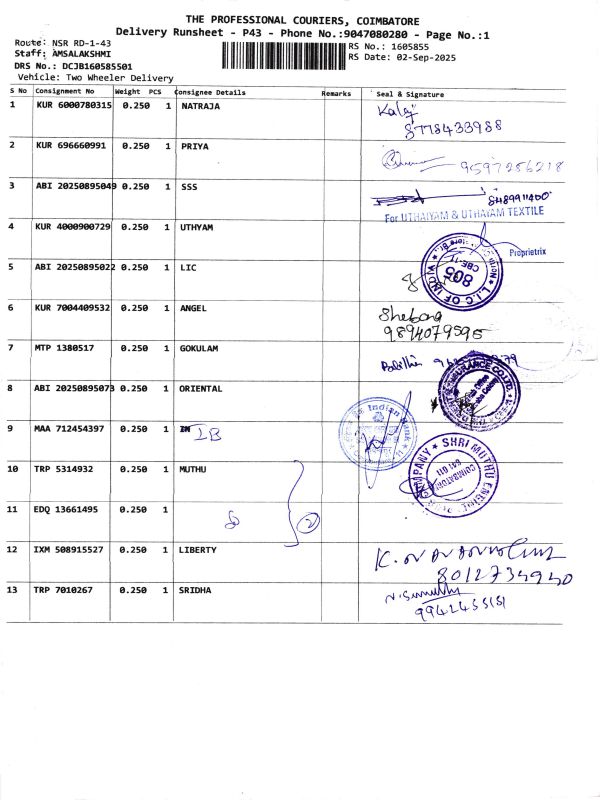 THE PROFESSIONAL COURIERS, COIMBATORE
Delivery Runsheet - P43 - Phone No.:9047080280 - Page No.:1
Route: NSR RD-1-43
Staff: AMSALAKSHMI
DRS No.: DCJB160585501
Vehicle: Two Wheeler Delivery
RS No.: 1605855
RS Date: 02-Sep-2025
S No Consignment No Weight PCS Consignee Details Remarks Seal & Signature
1 KUR 6000780315 0.250 1 NATRAJA
8778433988
2 KUR 696660991 0.250 1 PRIYA 9597286218
3 ABI 20250895049 0.250 1 SSS
For UTHAIYAM & UTHAIYAM TEXTILE
Proprietrix
4 KUR 4000900729 0.250 1 UTHYAM
5 ABI 20250895022 0.250 1 LIC
L.I.C OF INDIA
805
CBE-11
6 KUR 7004409532 0.250 1 ANGEL
9894079595
7 MTP 1380517 0.250 1 GOKULAM
8 ABI 20250895073 0.250 1 ORIENTAL
INSURANCE CO.LTD.
9 MAA 712454397 0.250 1 IB
Indian Bank
10 TRP 5314932 0.250 1 MUTHU
SHRI MUTHU ENGINE
COIMBATORE
641 011
11 EDQ 13661495 0.250 1
2
12 IXM 508915527 0.250 1 LIBERTY
8012734940
13 TRP 7010267 0.250 1 SRIDHA